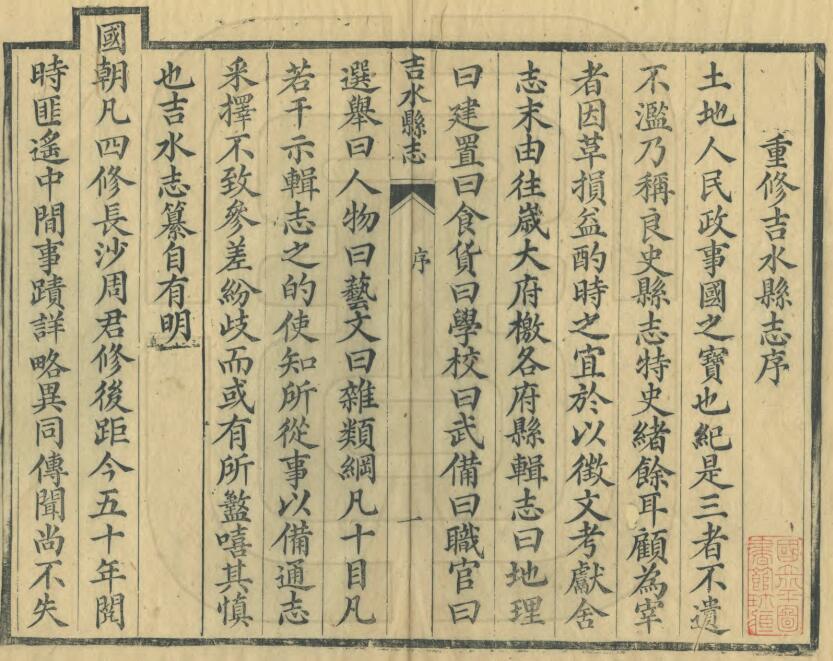 重修吉水縣志序
土地人民政事國之寶也紀是三者不遺
不濫乃稱良史縣志特史緒餘耳顧為宰
者因革損益酌時之宜於以徵文考獻舍
志末由往嵗大府檄各府縣輯志曰地理
曰建置曰食貨曰學校曰武備曰職官曰
吉水縣志
序
一
選舉曰人物曰藝文曰雜類綱凡十目凡
若干示輯志之的使知所從事以備通志
采擇不致參差紛歧而或有所盭嘻其慎
也吉水志纂自有明
國朝凡四修長沙周君修後距今五十年閱
時匪遙中間事蹟詳略異同傳聞尚不失
國立北平圖
書館珍藏